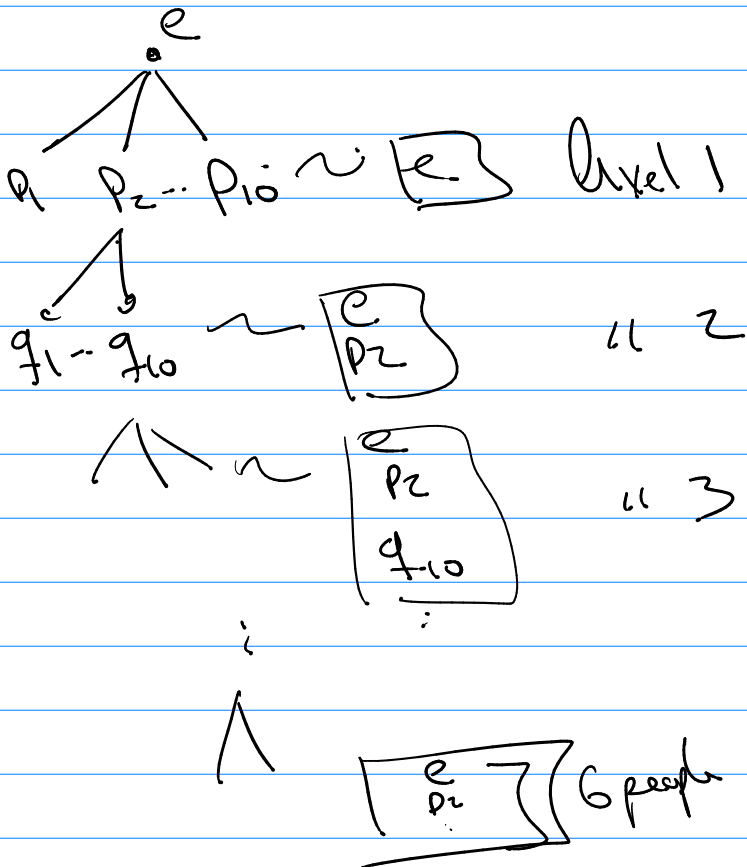 e
p1 p2 -- p10 ~ e level 1
q1 -- q10 ~ e p2 " 2
~ e p2 q10 " 3
:
e p2 : 6 people